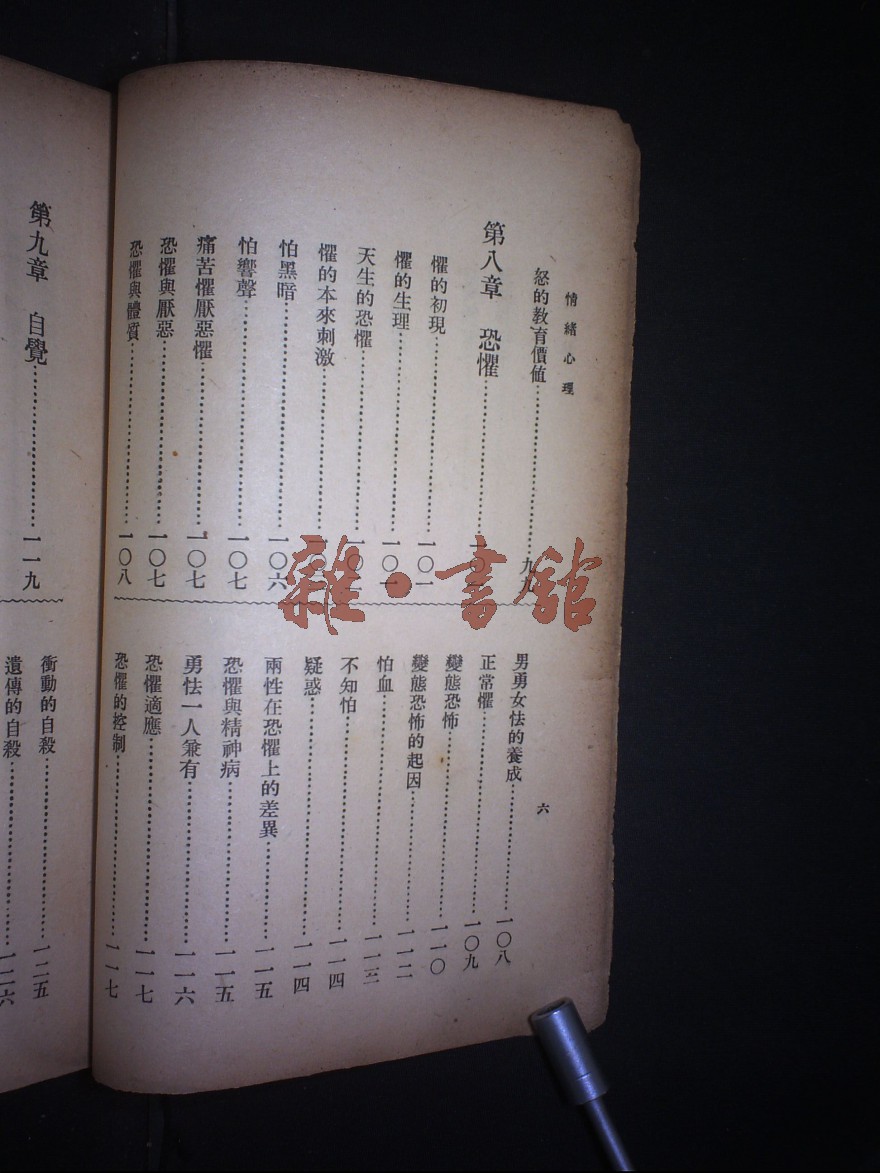 情緒心理
六
怒的教育價值……九九
第八章　恐懼……一〇
懼的初現……一〇一
懼的生理……一〇
天生的恐懼……一〇
懼的本來刺激
怕黑暗……一〇六
怕響聲……一〇七
痛苦懼厭惡懼……一〇七
恐懼與厭惡……一〇七
恐懼與體質……一〇八
男勇女怯的養成……一〇八
正常懼……一〇九
變態恐怖……一一〇
變態恐怖的起因……一一二
怕血……一一三
不知怕……一一四
疑惑……一一四
兩性在恐懼上的差異……一一五
恐懼與精神病……一一五
勇怯一人兼有……一一六
恐懼適應……一一七
恐懼的控制……一一七
第九章　自覺……一一九
衝動的自殺……一二五
遺傳的自殺……一二六
雜·書館